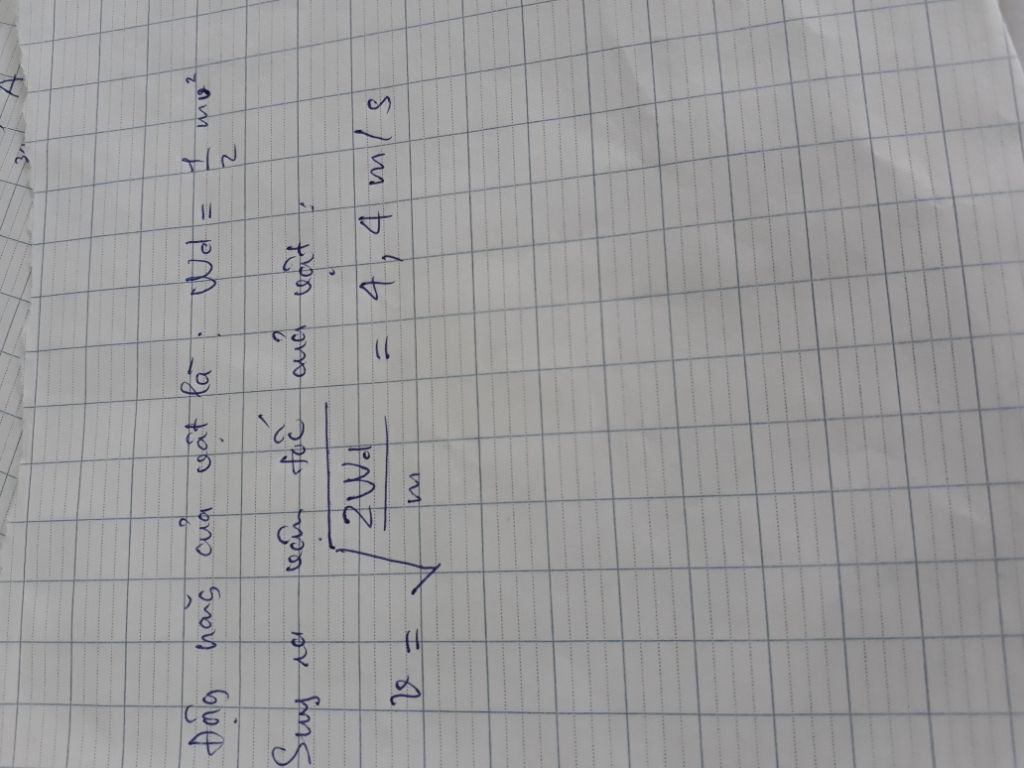 Động năng của vật là : Wd = 1/2 mv²
Suy ra vận tốc của vật :
v = √(2Wd/m) = 4,4 m/s